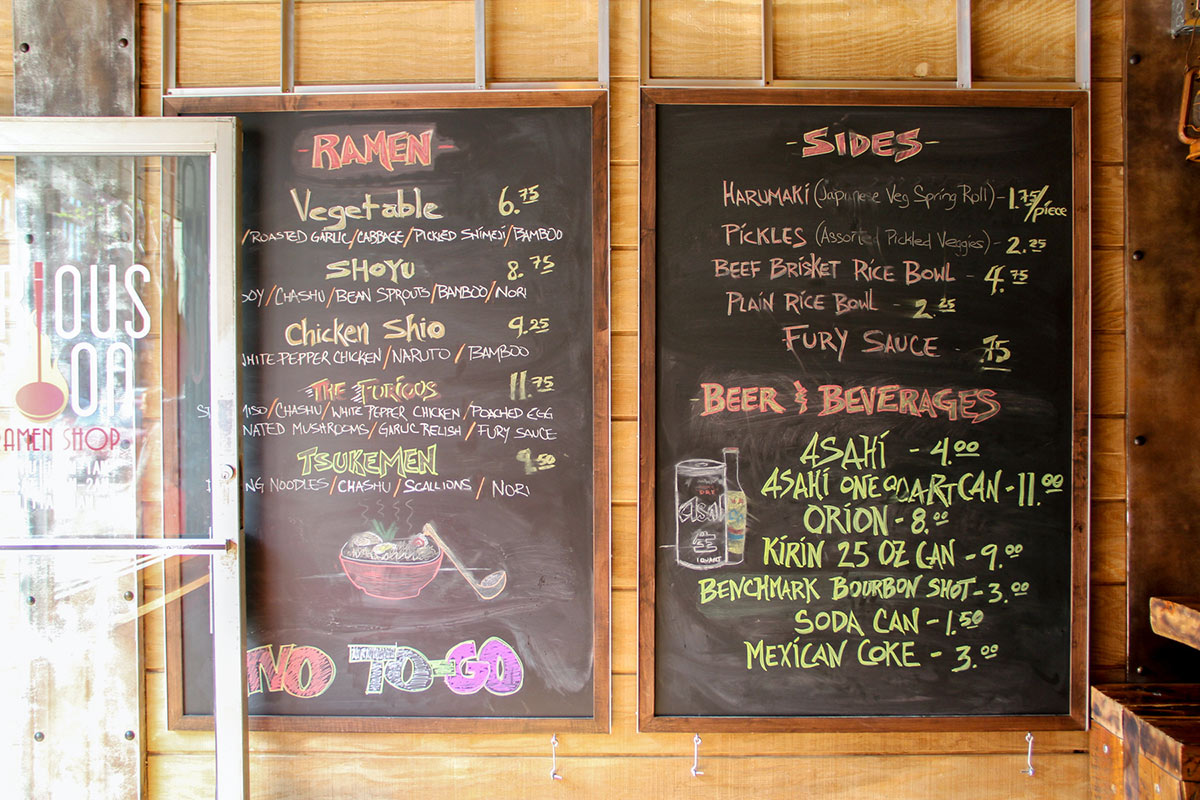 OUS
RAMEN SHOP
-RAMEN-
Vegetable 6.75
/ROASTED GARLIC/CABBAGE/PICKLED SHIMEJI/BAMBOO
SHOYU 8.75
SOY/CHASHU/BEAN SPROUTS/BAMBOO/NORI
Chicken Shio 9.25
WHITE PEPPER CHICKEN/NARUTO/BAMBOO
THE FURIOUS 11.75
MISO/CHASHU/WHITE PEPPER CHICKEN/POACHED EGG
NATED MUSHROOMS/GARLIC RELISH/FURY SAUCE
TSUKEMEN 9.50
NG NOODLES/CHASHU/SCALLIONS/NORI
NO TO-GO
-SIDES-
HARUMAKI (Japanese Veg Spring Roll)-1.75/piece
PICKLES (Assorted Pickled Veggies)-2.25
BEEF BRISKET RICE BOWL - 4.75
PLAIN RICE BOWL - 2.25
FURY SAUCE - .75
-BEER & BEVERAGES
ASAHI - 4.00
ASAHI ONE QUART CAN-11.00
ORION-8.00
KIRIN 25 OZ CAN-9.00
BENCHMARK BOURBON SHOT-3.00
SODA CAN-1.50
MEXICAN COKE - 3.00
DRY
Asahi